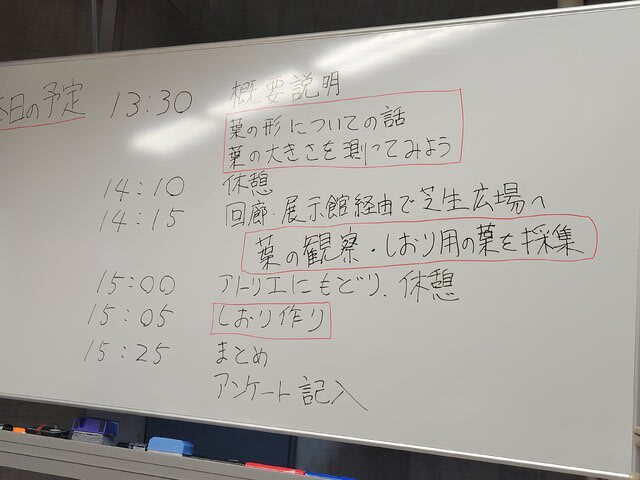 本日の予定 13:30 概要説明
葉の形についての話
葉の大きさを測ってみよう
14:10 休憩
14:15 回廊・展示館経由で芝生広場へ
葉の観察・しおり用の葉を採集
15:00 アトリエにもどり、休憩
15:05 しおり作り
15:25 まとめ
アンケート記入